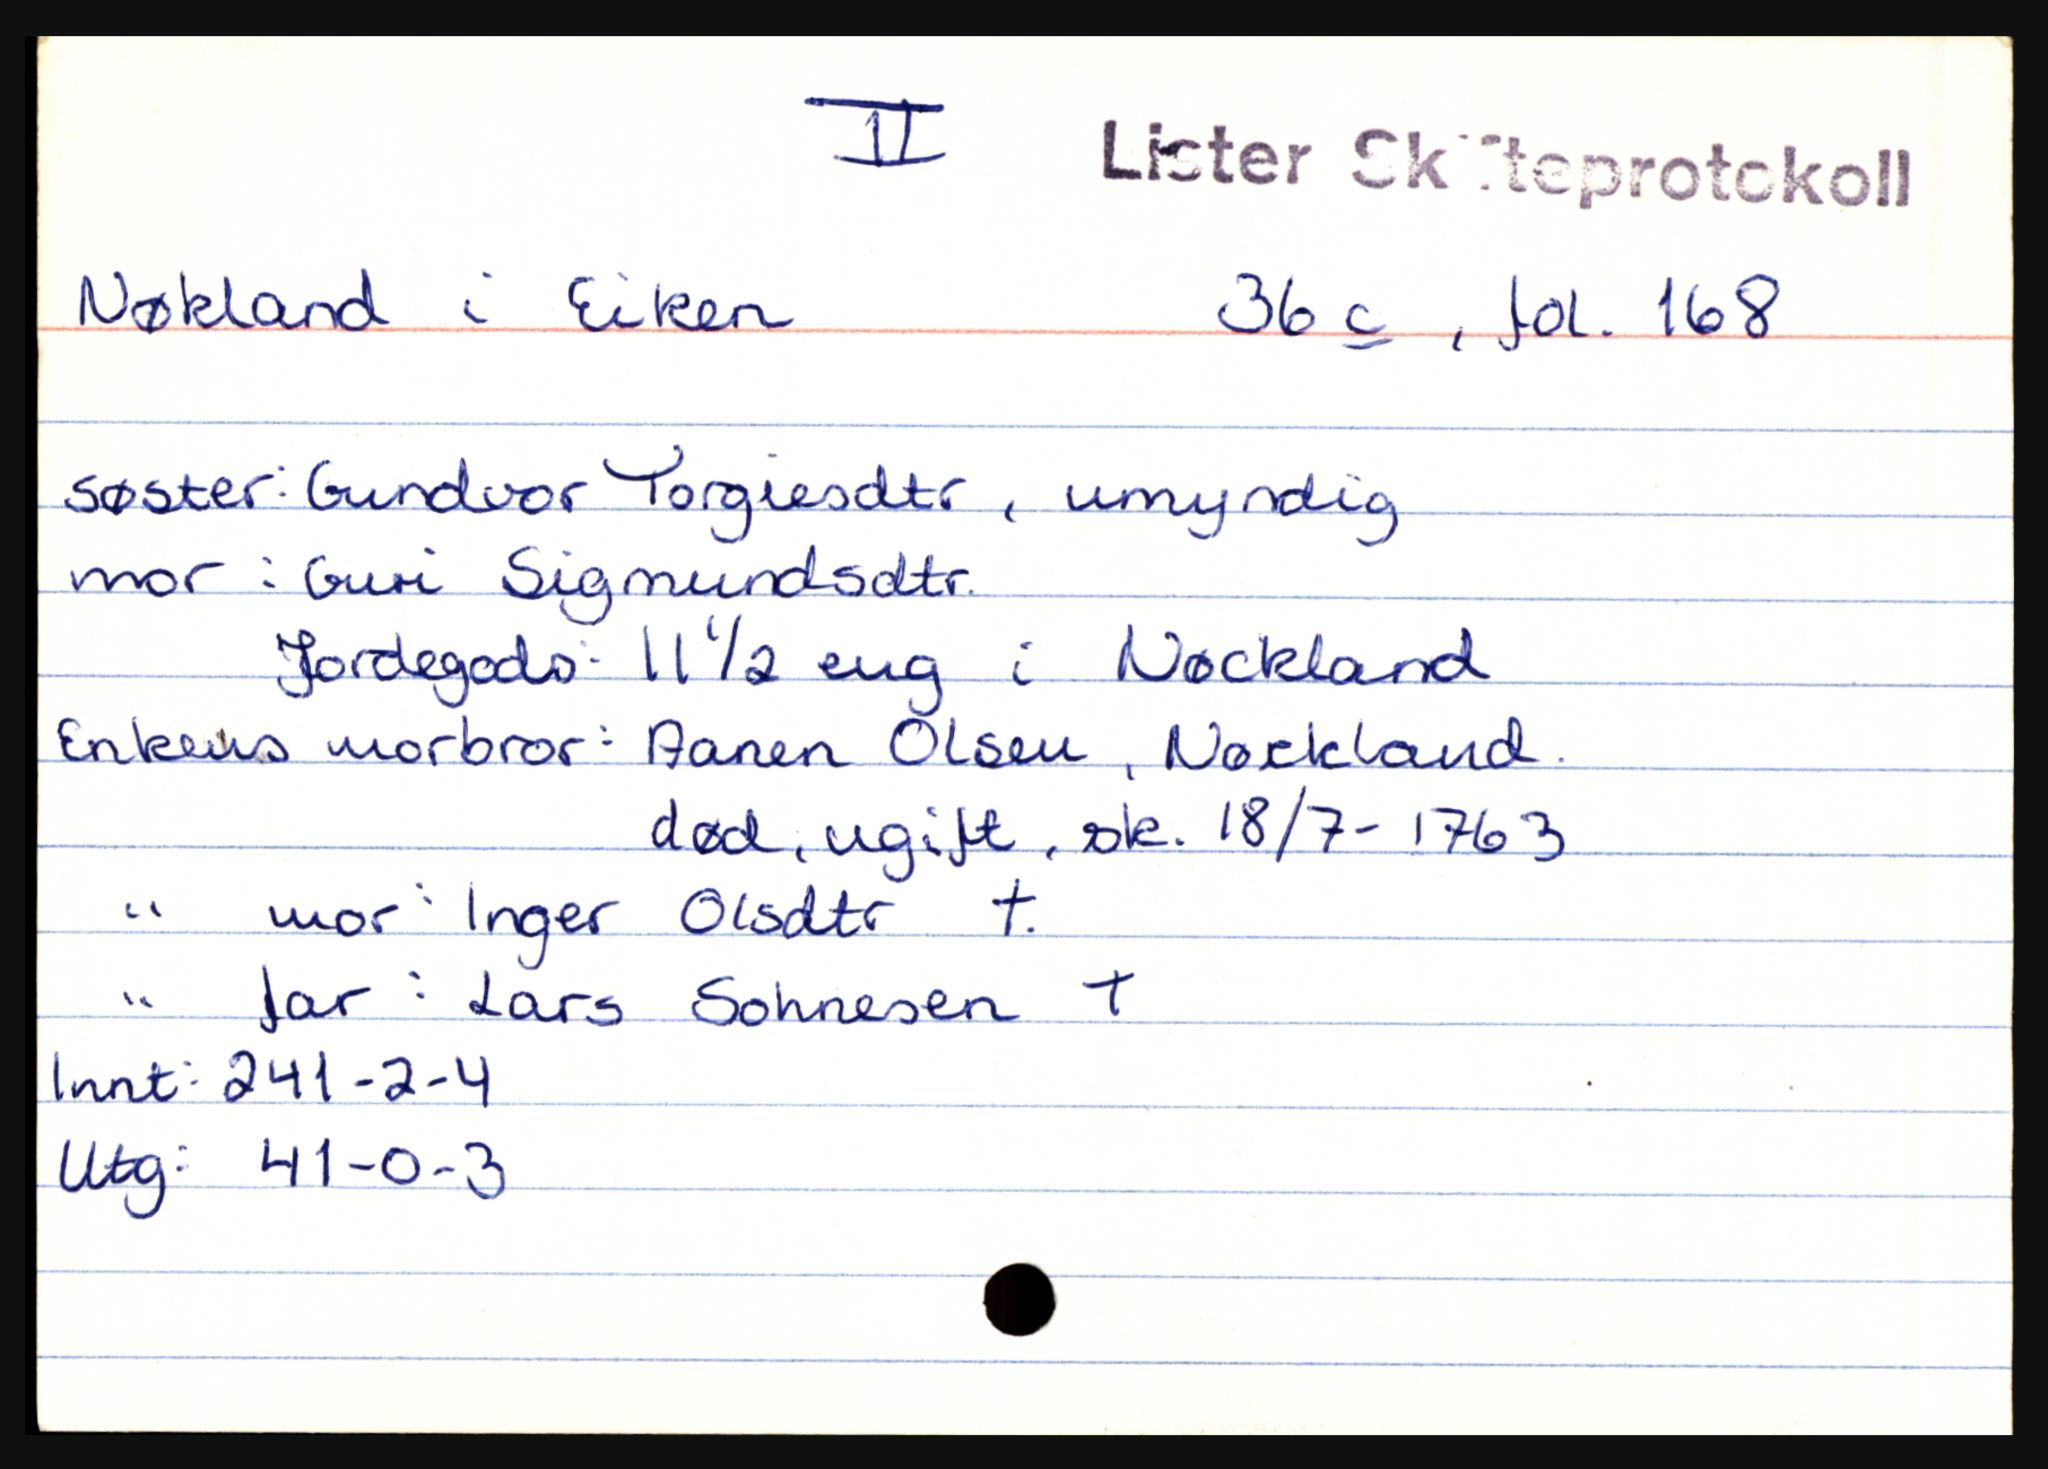 II
Lister Skifteprotokoll
Nøkland i Eiken 36 c, fol. 168
søster: Gundvor Torgiesdtr, umyndig
mor: Guri Sigmundsdtr.
Jordegods: 11 1/2 eng i Nøckland
Enkens morbror: Aanen Olsen, Nøckland.
død, ugift, sk. 18/7-1763
" mor: Inger Olsdtr †.
" far: Lars Sohnesen †
Innt: 241-2-4
Utg: 41-0-3